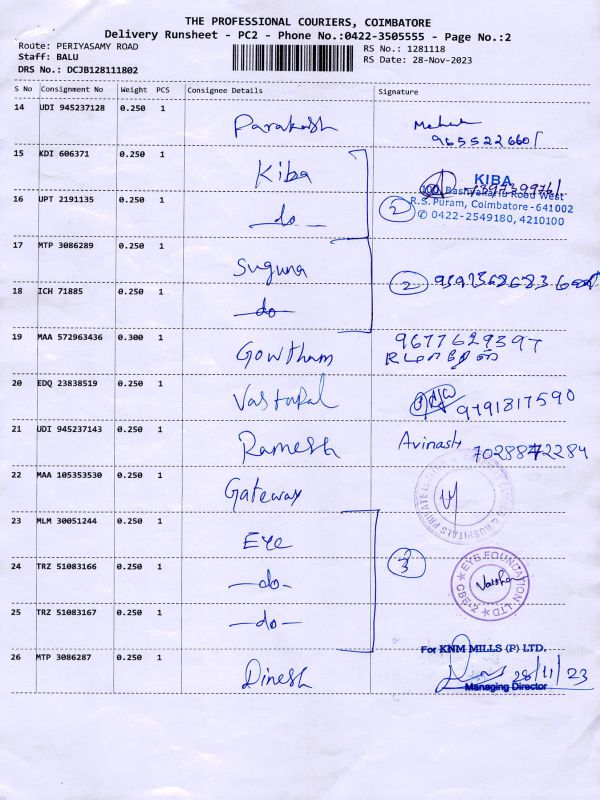 THE PROFESSIONAL COURIERS, COIMBATORE
Delivery Runsheet - PC2 - Phone No.:0422-3505555 - Page No.:2
Route: PERIYASAMY ROAD
RS No.: 1281118
Staff: BALU
RS Date: 28-Nov-2023
DRS No.: DCJB128111802
S No Consignment No Weight PCS Consignee Details Signature
14 UDI 945237128 0.250 1 Parakash
9655226601
15 KDI 606371 0.250 1 Kiba
KIBA
Road West
16 UPT 2191135 0.250 1 do 2 R.S. Puram, Coimbatore - 641002
✆ 0422-2549180, 4210100
17 MTP 3086289 0.250 1 Suguna
2
18 ICH 71885 0.250 1 do
19 MAA 572963436 0.300 1 Gowtham 9677629397
20 EDQ 23838519 0.250 1 9791817590
21 UDI 945237143 0.250 1 Ramesh Avinash
22 MAA 105353530 0.250 1 Gateway
23 MLM 30051244 0.250 1 Eye
3
24 TRZ 51083166 0.250 1 do
EYE FOUNDATION LTD
CBE-2
25 TRZ 51083167 0.250 1 do
26 MTP 3086287 0.250 1 Dinesh
For KNM MILLS (P) LTD.
28/11/23
Managing Director